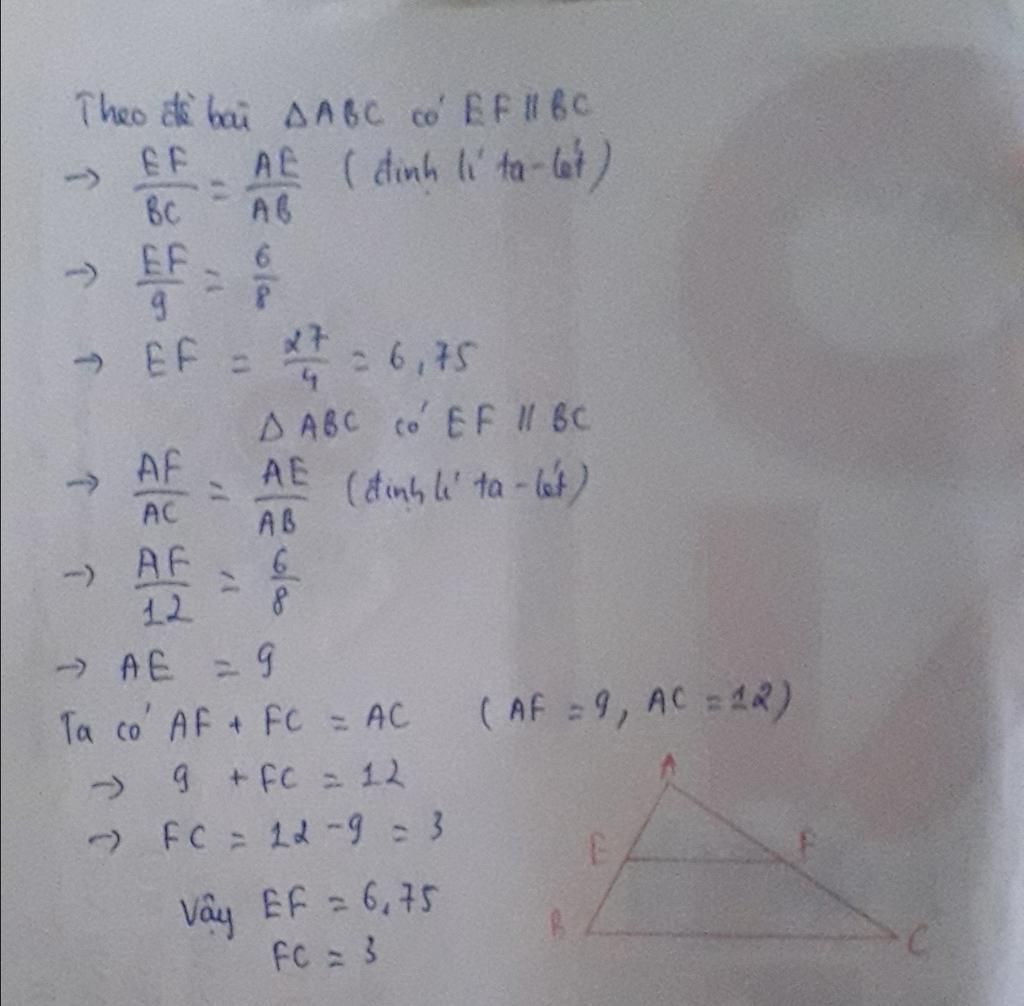 Theo đề bài ΔABC có EF // BC
→ EF/BC = AE/AB (định lí ta-lét)
→ EF/9 = 6/8
→ EF = 27/4 = 6,75
Δ ABC có EF // BC
→ AF/AC = AE/AB (định lí ta-lét)
→ AF/12 = 6/8
→ AE = 9
Ta có AF + FC = AC (AF = 9, AC = 12)
→ 9 + FC = 12
→ FC = 12 - 9 = 3
Vậy EF = 6,75
FC = 3
A
E F
B C